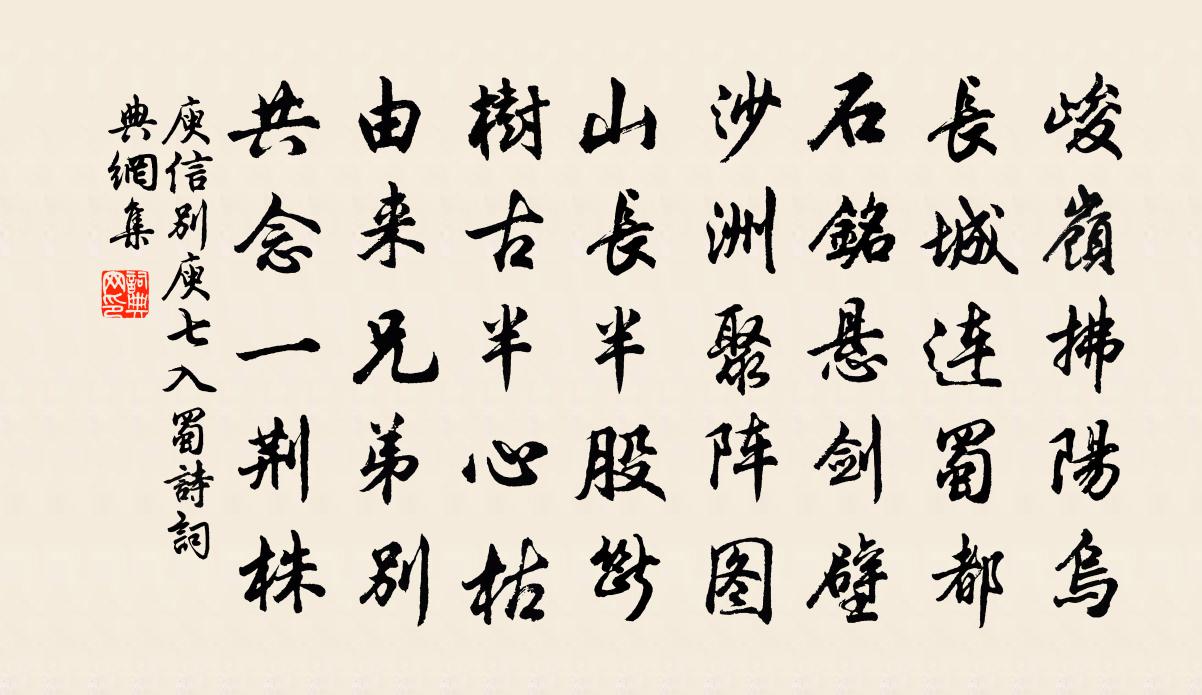 峻嶺拂陽烏
長城連蜀都
石銘悬劍壁
沙洲聚阵图
山長半股斷
樹古半心枯
由来兄弟別
共念一荆株
庾信別庾七入蜀詩詞
典網集
詞典
网印